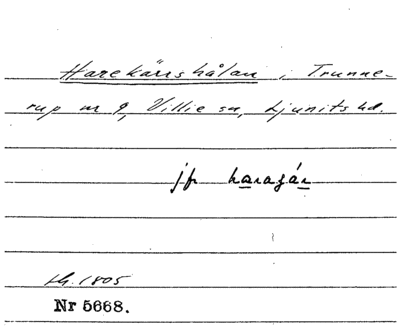 Harekärrshålan i Trunne-
rup nr 9, Villie sn, Ljunits hd.
jfr harazár
Lh. 1805
Nr 5668.